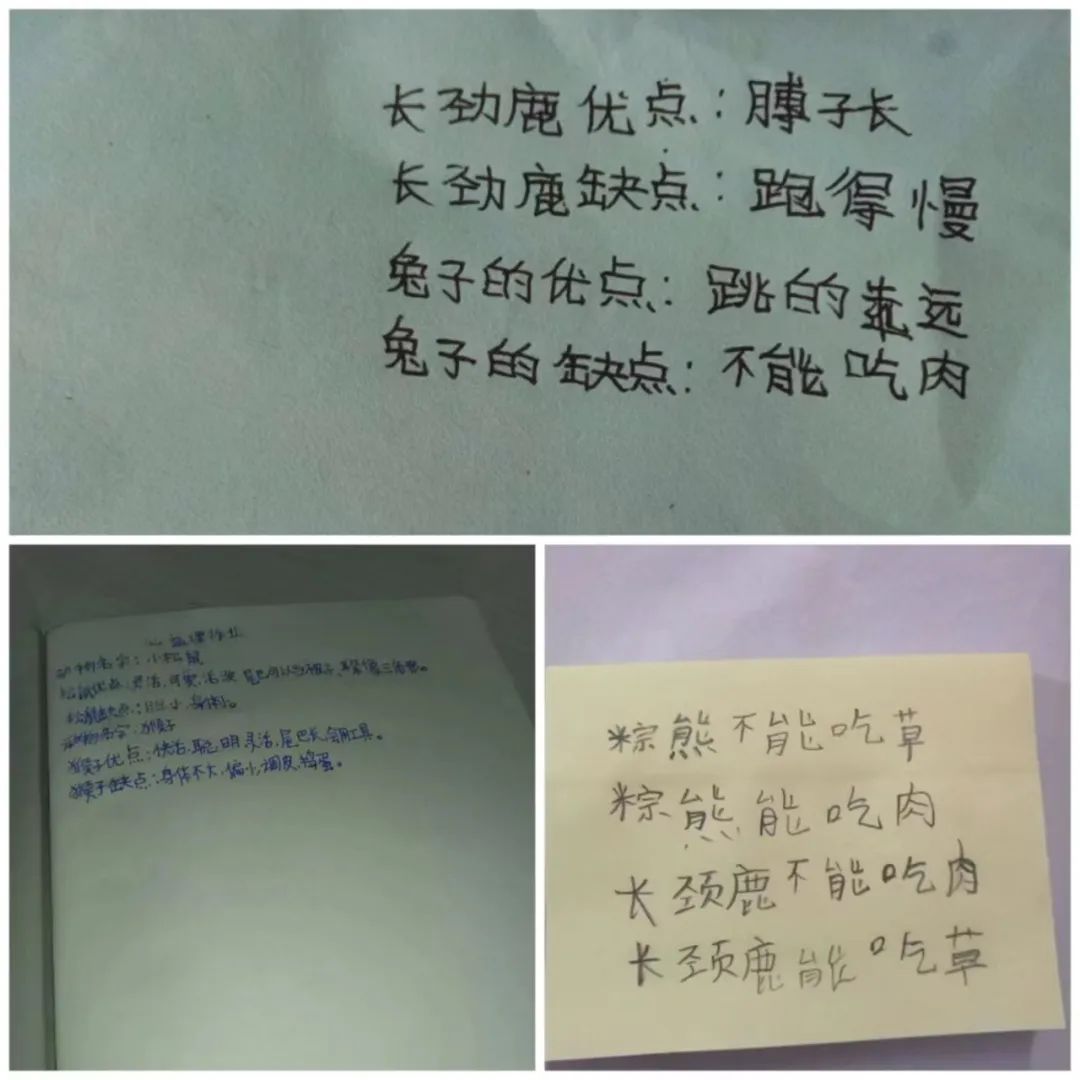 长劲鹿优点：脖子长
长劲鹿缺点：跑得慢
兔子的优点：跳的远
兔子的缺点：不能吃肉
公益课作业
动物名字：小松鼠
松鼠优点：灵活，可爱，活泼，尾巴可以当被子，
松鼠缺点：胆小，身体小。
动物名字：猴子
猴子优点：快活，聪明，灵活，尾巴长，会用工具。
猴子缺点：身体不大，偏小，调皮，捣蛋。
粽熊不能吃草
粽熊能吃肉
长颈鹿不能吃肉
长颈鹿能吃草